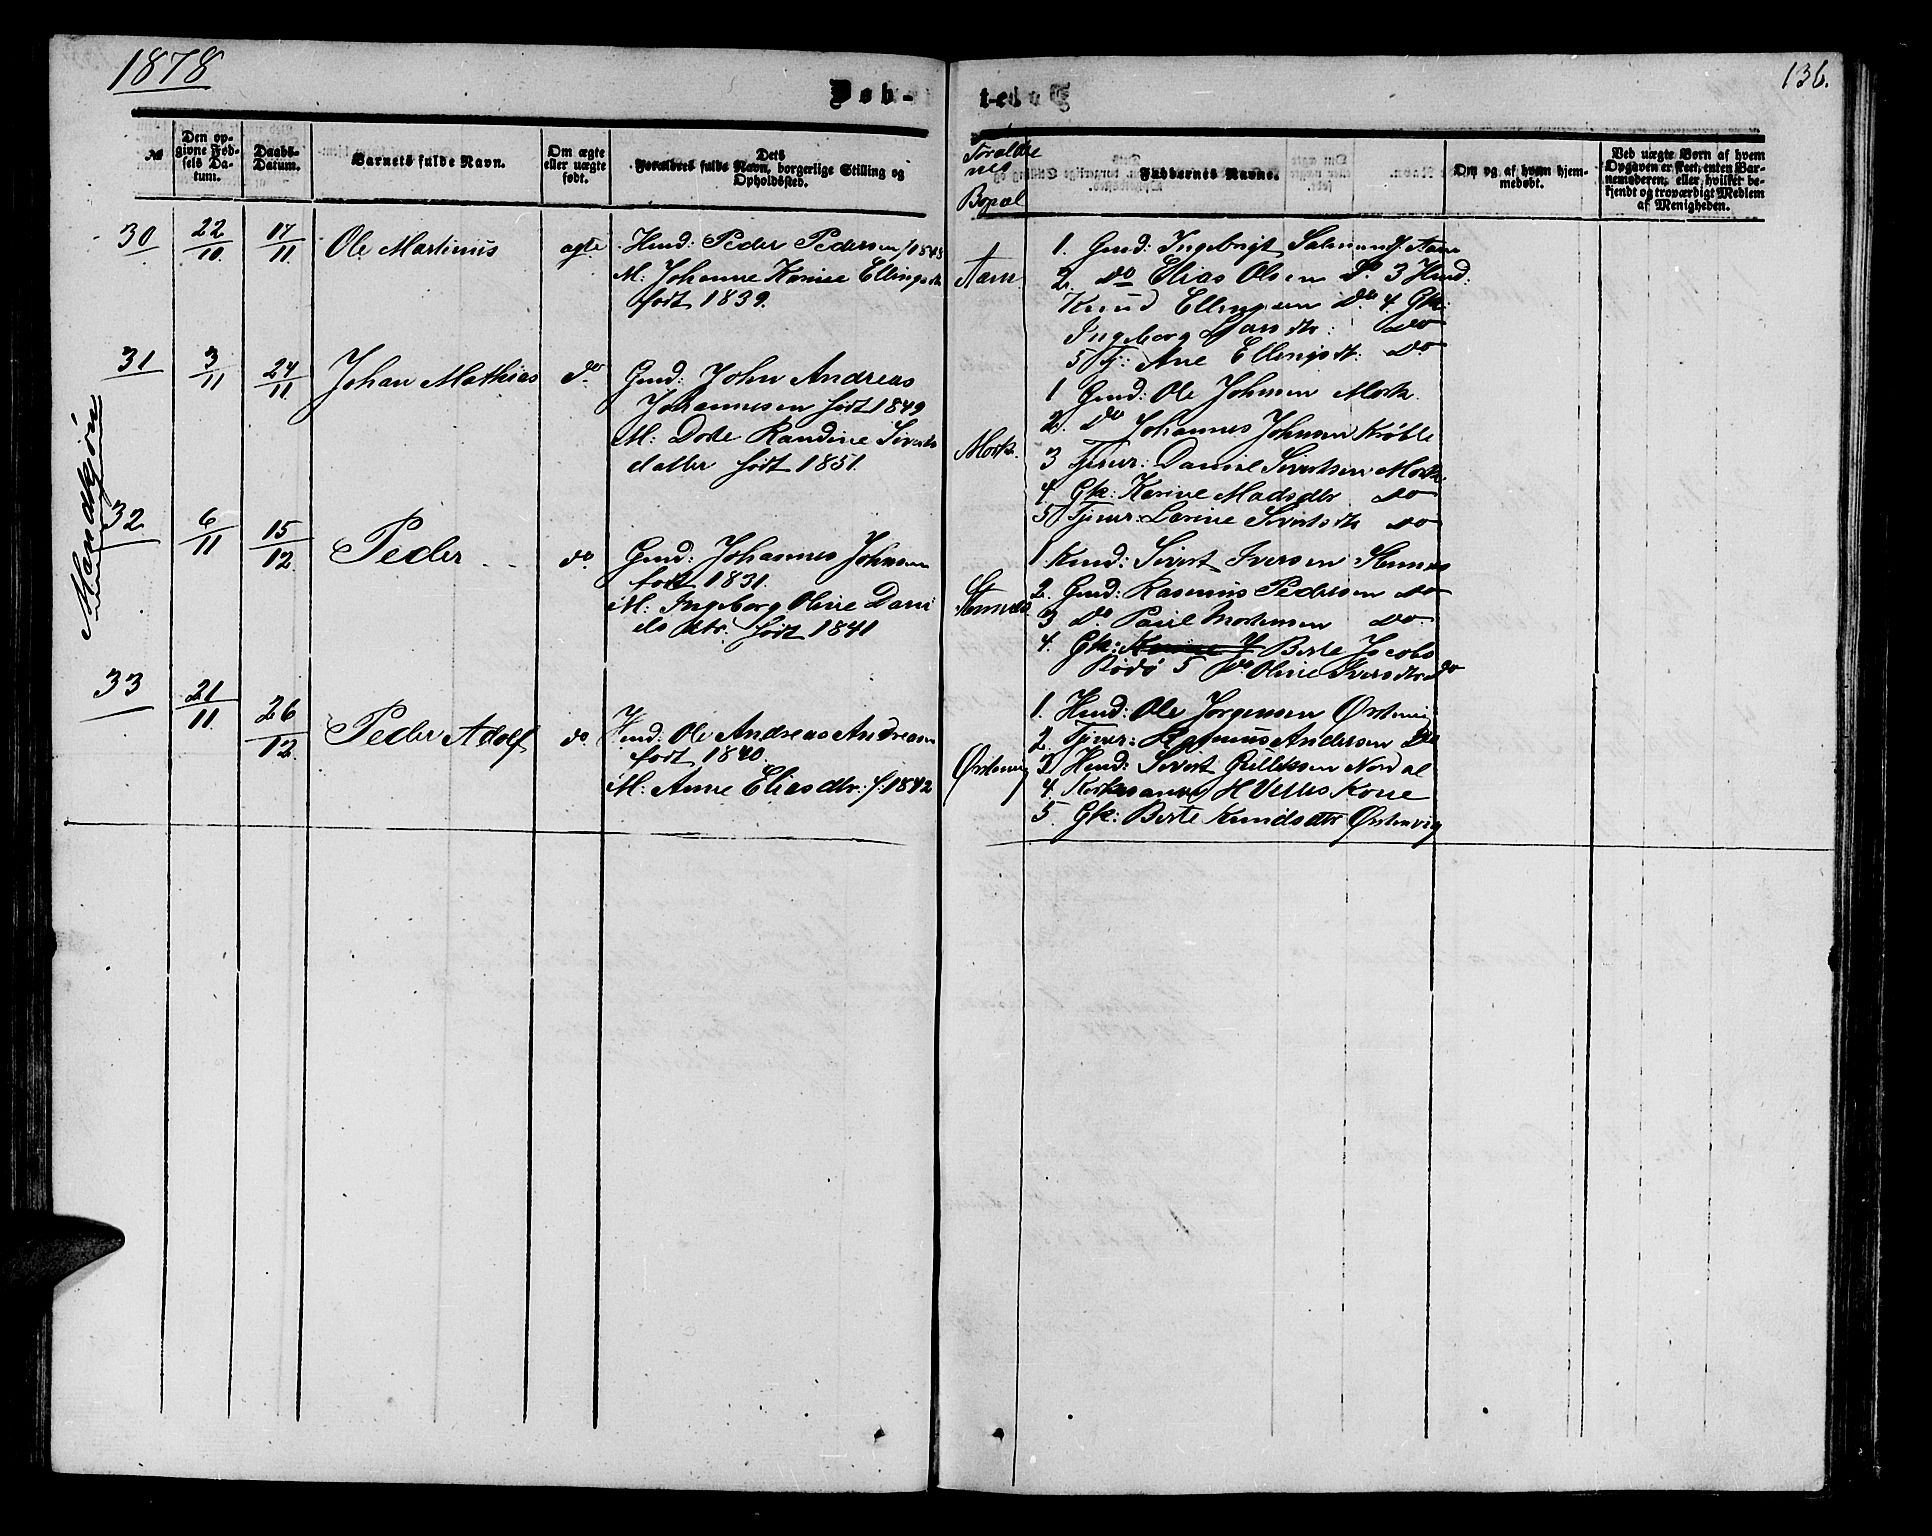 1878
136.
Døb-
t-
№
Den op-
givne Fød-
sels Da-
tum.
Daabs-
Datum.
Barnets fulde Navn.
Om ægte
eller uægte
født.
Dets
Forældres fulde Navn, borgerlige Stilling og
Opholdssted.
Foræld
nes
Bopæl
Faddernes Navne.
Om og af hvem hjem-
medøbt.
Ved uægte Børn af hvem
Opgaven er skeet, enten Bar-
nemoderen, eller, hvilket be-
kjendt og troværdigt Medlem
af Menigheden.
Mandkjøn
30
22/10
17/11
Ole Martinus
ægte
Huud: Peder Pedersen f 1843
M: Johanne Karine Ellingsdtr
født 1839.
Aam
1. Gmd: Ingebrigt Salmundss. Aam
2. do Elias Olsen do 3 Huud:
Knud Ellingsen do 4 Gk:
Ingeborg Larsdtr: do
5 Pj: Ane Ellingsdt: do
31
3/11
24/11
Johan Mathias
do
Gmd: John Andreas
Johannesen født 1849
M: Dorte Randine Siverts
datter født 1851.
Mork.
1 Gmd: Ole Johnsen Mork.
2. do Johannes Johnsen Krøble
3 Tjener: Daniel Sivertsen Mork.
4. Gk: Karine Madsdtr do
5 Tjener: Larine Sivertsdtr do
32
6/11
15/12
Peder
do
Gmd: Johannes Johnsen
født 1831.
M: Ingeborg Oline Dani
els dtr. født 1841
Stennes
1. Kmd: Sivert Iversen Stennes
2. Gmd: Rasmus Pedersen do
3 do. Paul Mortensen do
4. Gk: Berte Jacobs
Rødø 5 Oline Iversdtr do
33
21/11
26/12
Peder Adolf
do.
Huud: Ole Andreas Andreasen
født 1840.
M: Anne Eliasdtr: f. 1842
Østenvig
1. Huud: Ole Jørgensen Østenvig
2. Tjener: Rasmus Andersen do
3. Huud: Sivert Gulliksen Nordal
4. Kirkesanger H Velles Kone
5. Gk: Berte Knudsdtr Østenvig